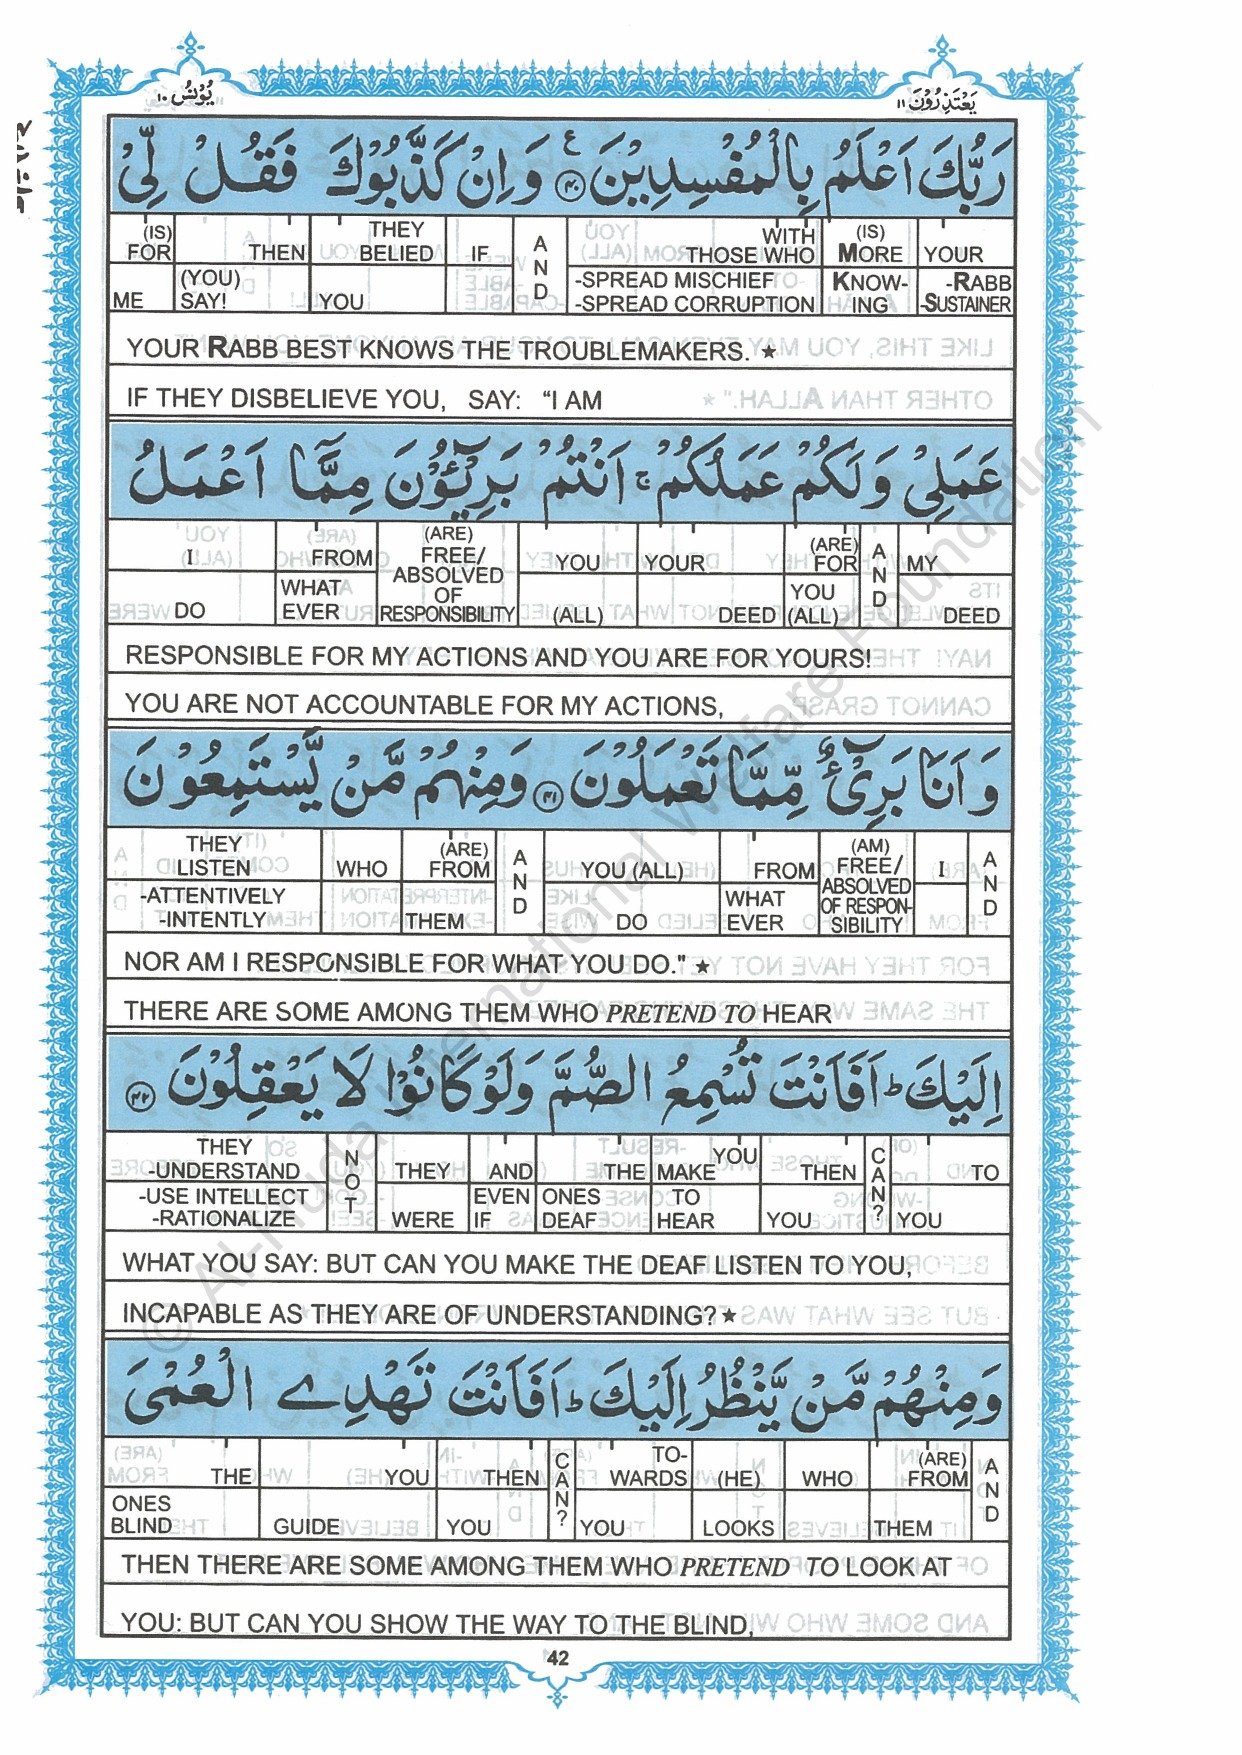 يُوْنُسُ ١٠
يَعْتَذِرُوْنَ ١١
رَبُّكَ اَعْلَمُ بِالْمُفْسِدِيْنَ ﴿٤٠﴾ ع وَ اِنْ كَذَّبُوْكَ فَقُلْ لِّيْ
(IS) FOR THEN THEY BELIED IF AND WITH THOSE WHO (IS) MORE YOUR
ME (YOU) SAY! YOU -SPREAD MISCHIEF -SPREAD CORRUPTION KNOW-ING -RABB -SUSTAINER
YOUR RABB BEST KNOWS THE TROUBLEMAKERS. ★
IF THEY DISBELIEVE YOU, SAY: “I AM
عَمَلِيْ وَ لَكُمْ عَمَلُكُمْ ۚ اَنْتُمْ بَرِيْٓـُٔوْنَ مِمَّاۤ اَعْمَلُ
I FROM (ARE) FREE/ ABSOLVED OF RESPONSIBILITY YOU YOUR (ARE) FOR AND MY
DO WHAT EVER (ALL) DEED YOU (ALL) DEED
RESPONSIBLE FOR MY ACTIONS AND YOU ARE FOR YOURS!
YOU ARE NOT ACCOUNTABLE FOR MY ACTIONS,
وَ اَنَا بَرِيْٓءٌ مِّمَّا تَعْمَلُوْنَ ﴿٤١﴾ وَ مِنْهُمْ مَّنْ يَّسْتَمِعُوْنَ
THEY LISTEN WHO (ARE) FROM AND YOU (ALL) FROM (AM) FREE/ ABSOLVED OF RESPON-SIBILITY I AND
-ATTENTIVELY -INTENTLY THEM DO WHAT EVER
NOR AM I RESPONSIBLE FOR WHAT YOU DO." ★
THERE ARE SOME AMONG THEM WHO PRETEND TO HEAR
اِلَيْكَ ؕ اَفَاَنْتَ تُسْمِعُ الصُّمَّ وَ لَوْ كَانُوْا لَا يَعْقِلُوْنَ ﴿٤٢﴾
THEY -UNDERSTAND NOT THEY AND THE YOU MAKE THEN CAN? TO
-USE INTELLECT -RATIONALIZE WERE EVEN IF ONES DEAF TO HEAR YOU YOU
WHAT YOU SAY: BUT CAN YOU MAKE THE DEAF LISTEN TO YOU,
INCAPABLE AS THEY ARE OF UNDERSTANDING? ★
وَ مِنْهُمْ مَّنْ يَّنْظُرُ اِلَيْكَ ؕ اَفَاَنْتَ تَهْدِي الْعُمْيَ
THE YOU THEN CAN? TO-WARDS (HE) WHO (ARE) FROM AND
ONES BLIND GUIDE YOU YOU LOOKS THEM
THEN THERE ARE SOME AMONG THEM WHO PRETEND TO LOOK AT
YOU: BUT CAN YOU SHOW THE WAY TO THE BLIND,
42
© Al-Huda International Welfare Foundation